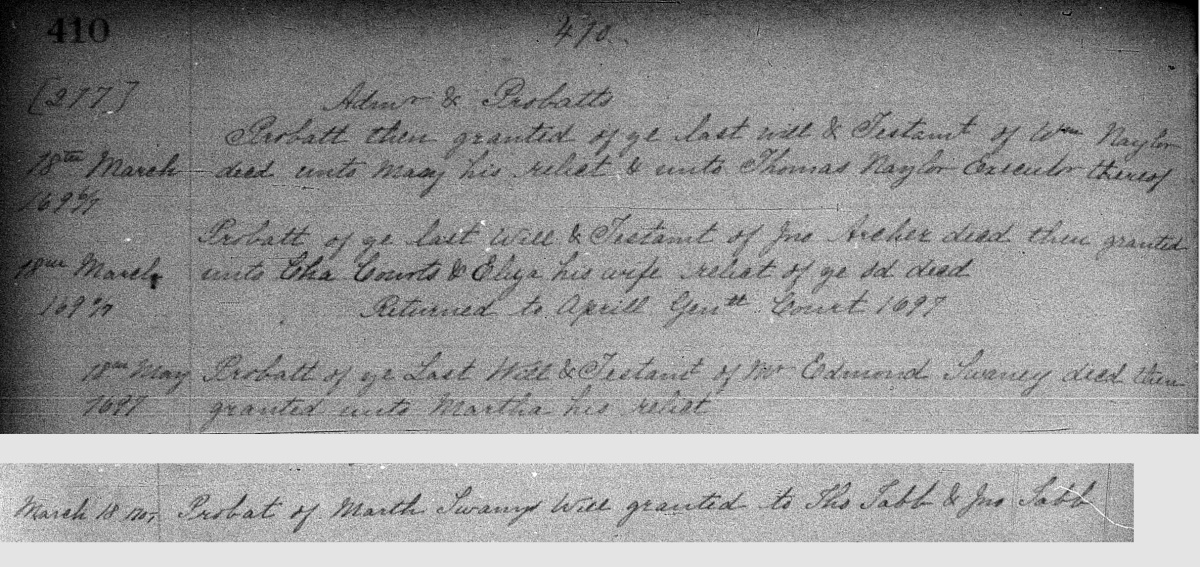 410
410
[277] Admr & Probatts
Probatt then granted of ye last will & Testamt of Wm Naylor
18th March decd unto Mary his relict & unto Thomas Naylor Executor thereof
1696/7
Probatt of ye last Will & Testamt of Jno Archer decd then granted
18th March unto Cha Courts & Eliza his wife relict of ye sd decd
1696/7 Returned to Aprill Genll Court 1697
18th May Probatt of ye Last Will & Testamt of Mr Edmond Swaney decd then
1697 granted unto Martha his relict
March 18 Probat of Marth Swany Will granted to Tho Tabb & Jno Tabb